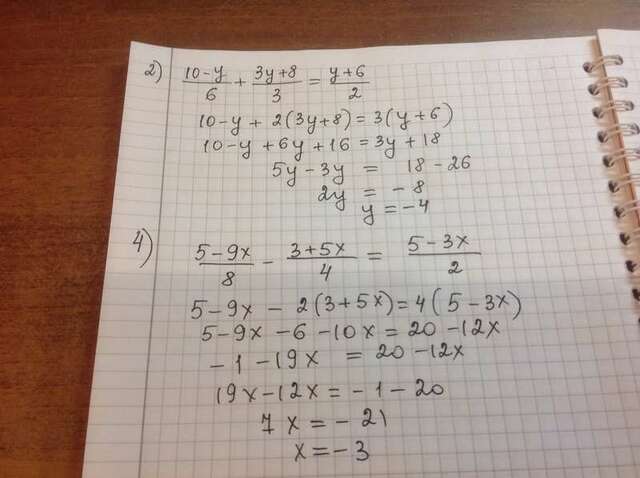 2) (10-y)/6 + (3y+8)/3 = (y+6)/2
10-y + 2(3y+8) = 3(y+6)
10-y+6y+16 = 3y+18
5y-3y = 18-26
2y = -8
y = -4
4) (5-9x)/8 - (3+5x)/4 = (5-3x)/2
5-9x - 2(3+5x) = 4(5-3x)
5-9x-6-10x = 20-12x
-1-19x = 20-12x
19x-12x = -1-20
7x = -21
x = -3